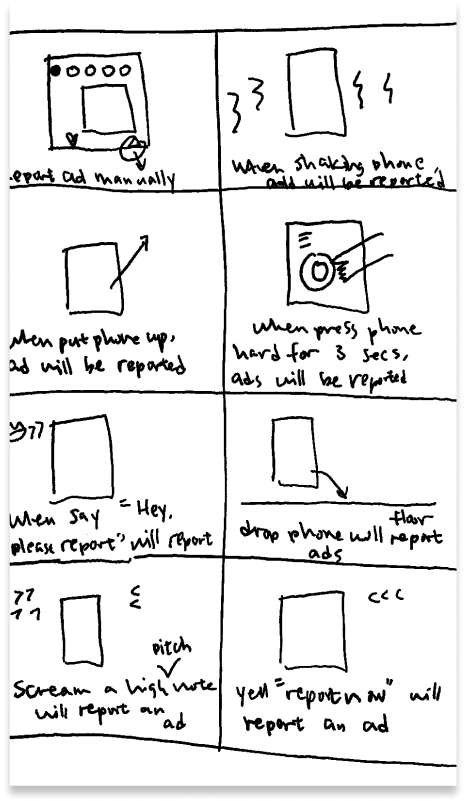 eport ad manually
when shaking phone,
ads will be reported
when put phone up,
ad will be reported
when press phone
hard for 3 secs,
ads will be reported
when say "Hey,
please report" will report
floor
drop phone will report
ads
pitch
Scream a high note
will report an
ad
yell "report now" will
report an ad